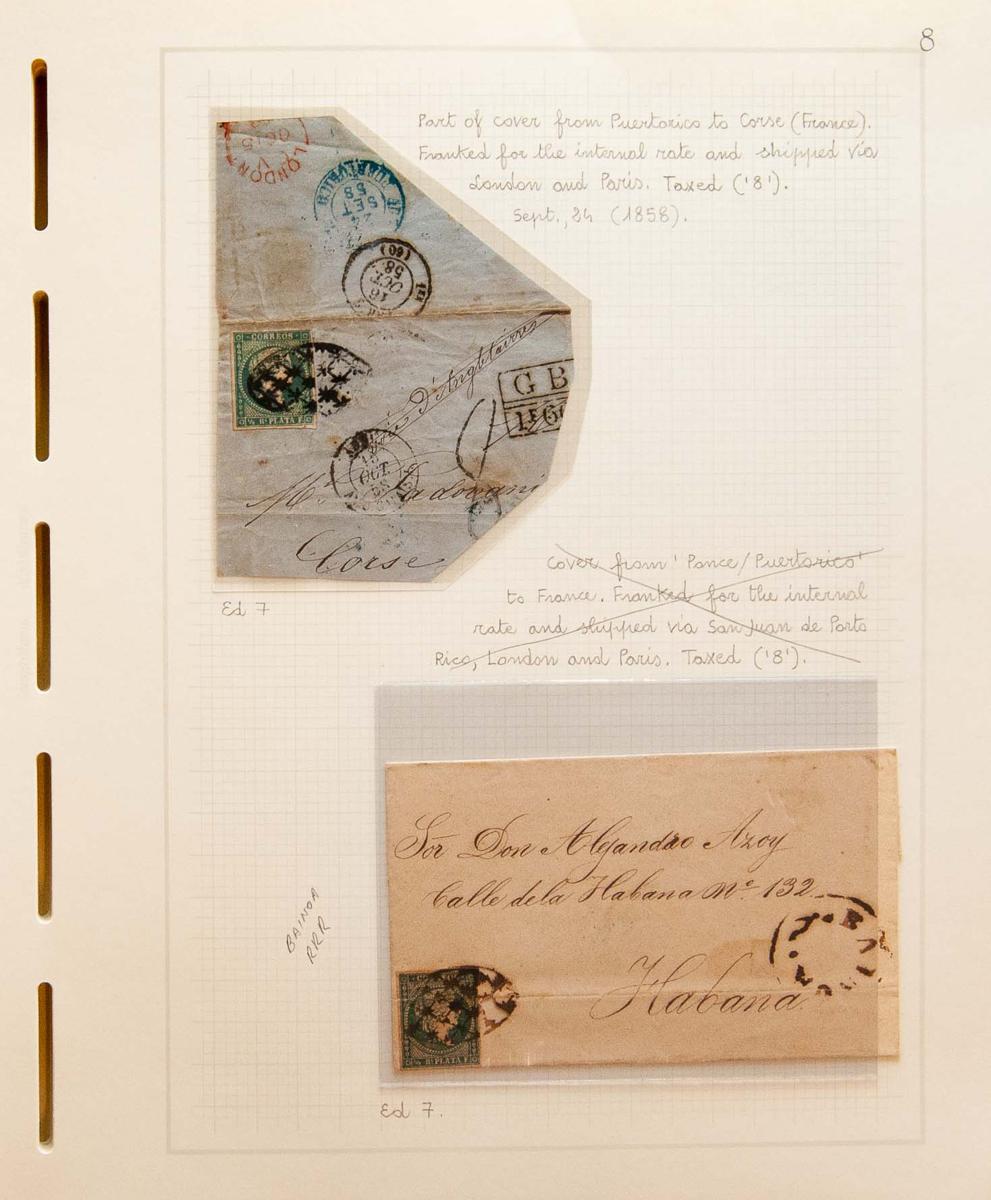 8
Part of cover from Puertorico to Corse (France).
Franked for the internal rate and shipped via
London and Paris. Taxed ('8').
Sept., 24 (1858).
LONDON
OC 15
24
SET
58
16
OCT.
58
(60)
CORREOS
½ Rl PLATA F.
d'Angleterre
G B
1F 60
OCT
58
Mr
Corse
Ed 7
Cover from 'Ponce/Puertorico'
to France. Franked for the internal
rate and shipped via San Juan de Porto
Rico, London and Paris. Taxed ('8').
Sor Don Alejandro Azoy
Calle de la Habana No. 132
Habana
BAINOA
RRR
½ Rl PLATA F.
Ed 7.